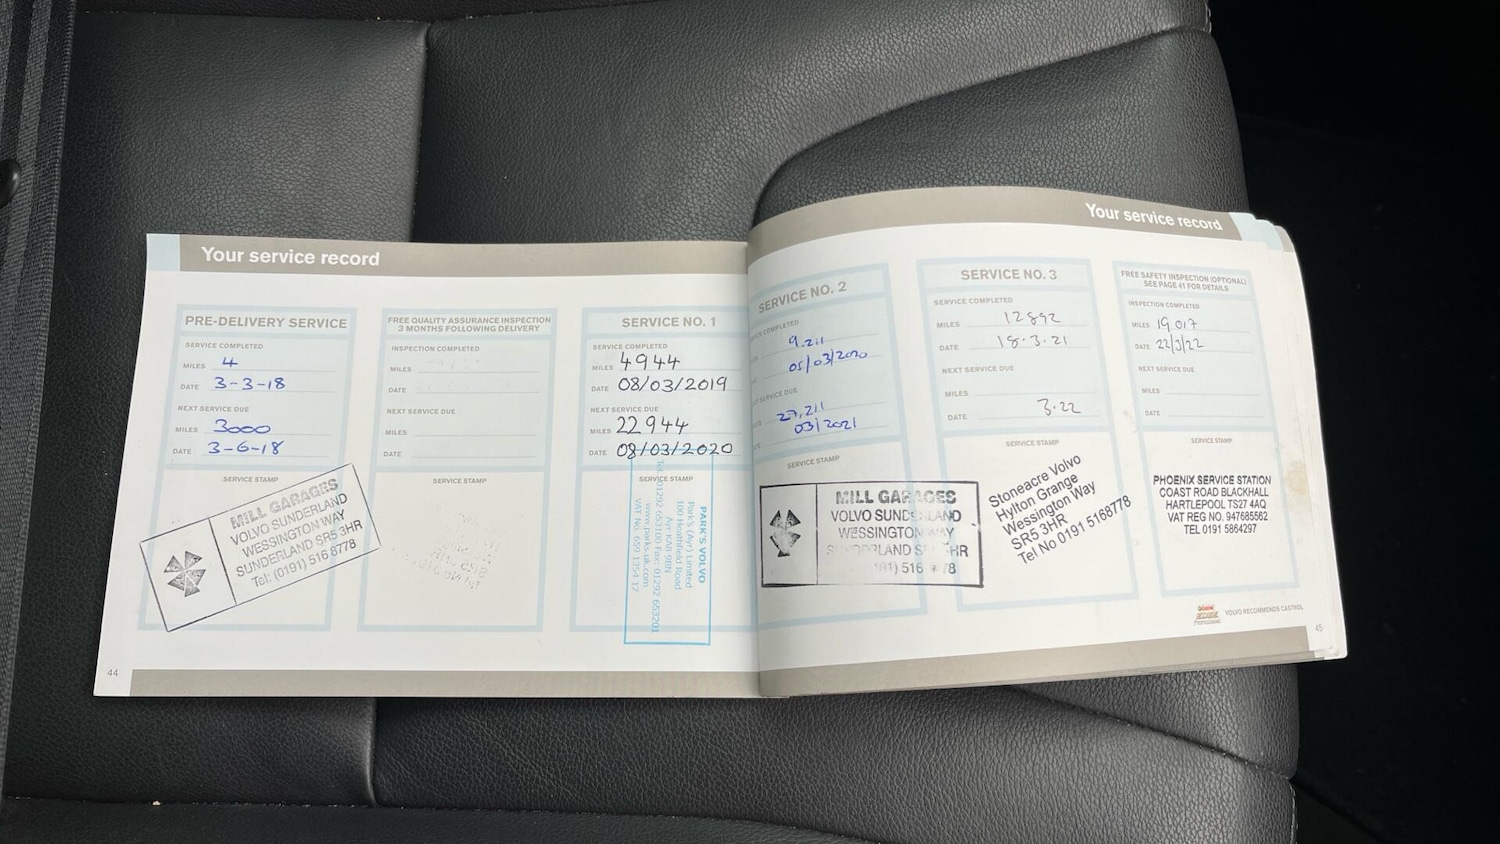 Your service record
PRE-DELIVERY SERVICE
SERVICE COMPLETED
MILES 4
DATE 3-3-18
NEXT SERVICE DUE
MILES 3000
DATE 3-6-18
SERVICE STAMP
MILL GARAGES
VOLVO SUNDERLAND
WESSINGTON WAY
SUNDERLAND SR5 3HR
Tel: (0191) 516 8778
44
FREE QUALITY ASSURANCE INSPECTION
3 MONTHS FOLLOWING DELIVERY
INSPECTION COMPLETED
MILES
DATE
NEXT SERVICE DUE
MILES
DATE
SERVICE STAMP
SERVICE NO. 1
SERVICE COMPLETED
MILES 4944
DATE 08/03/2019
NEXT SERVICE DUE
MILES 22944
DATE 08/03/2020
SERVICE STAMP
PARK'S VOLVO
Park's (Ayr) Limited
100 Heathfield Road
Ayr KA8 9BN
Tel: 01292 653100 Fax: 01292 653201
www.parks.uk.com
VAT No. 659 1354 17
Your service record
SERVICE NO. 2
COMPLETED
9,211
05/03/2020
SERVICE DUE
27,211
03/2021
SERVICE STAMP
MILL GARAGES
VOLVO SUNDERLAND
WESSINGTON WAY
SERVICE NO. 3
SERVICE COMPLETED
MILES 12892
DATE 18.3.21
NEXT SERVICE DUE
MILES
DATE 3.22
SERVICE STAMP
Stoneacre Volvo
Hylton Grange
Wessington Way
SR5 3HR
Tel No 0191 5168778
FREE SAFETY INSPECTION (OPTIONAL)
SEE PAGE 41 FOR DETAILS
INSPECTION COMPLETED
MILES 19017
DATE 22/3/22
NEXT SERVICE DUE
MILES
DATE
SERVICE STAMP
PHOENIX SERVICE STATION
COAST ROAD BLACKHALL
HARTLEPOOL TS27 4AQ
VAT REG NO. 947685562
TEL 0191 5864297
Castrol
EDGE
Professional
VOLVO RECOMMENDS CASTROL
45